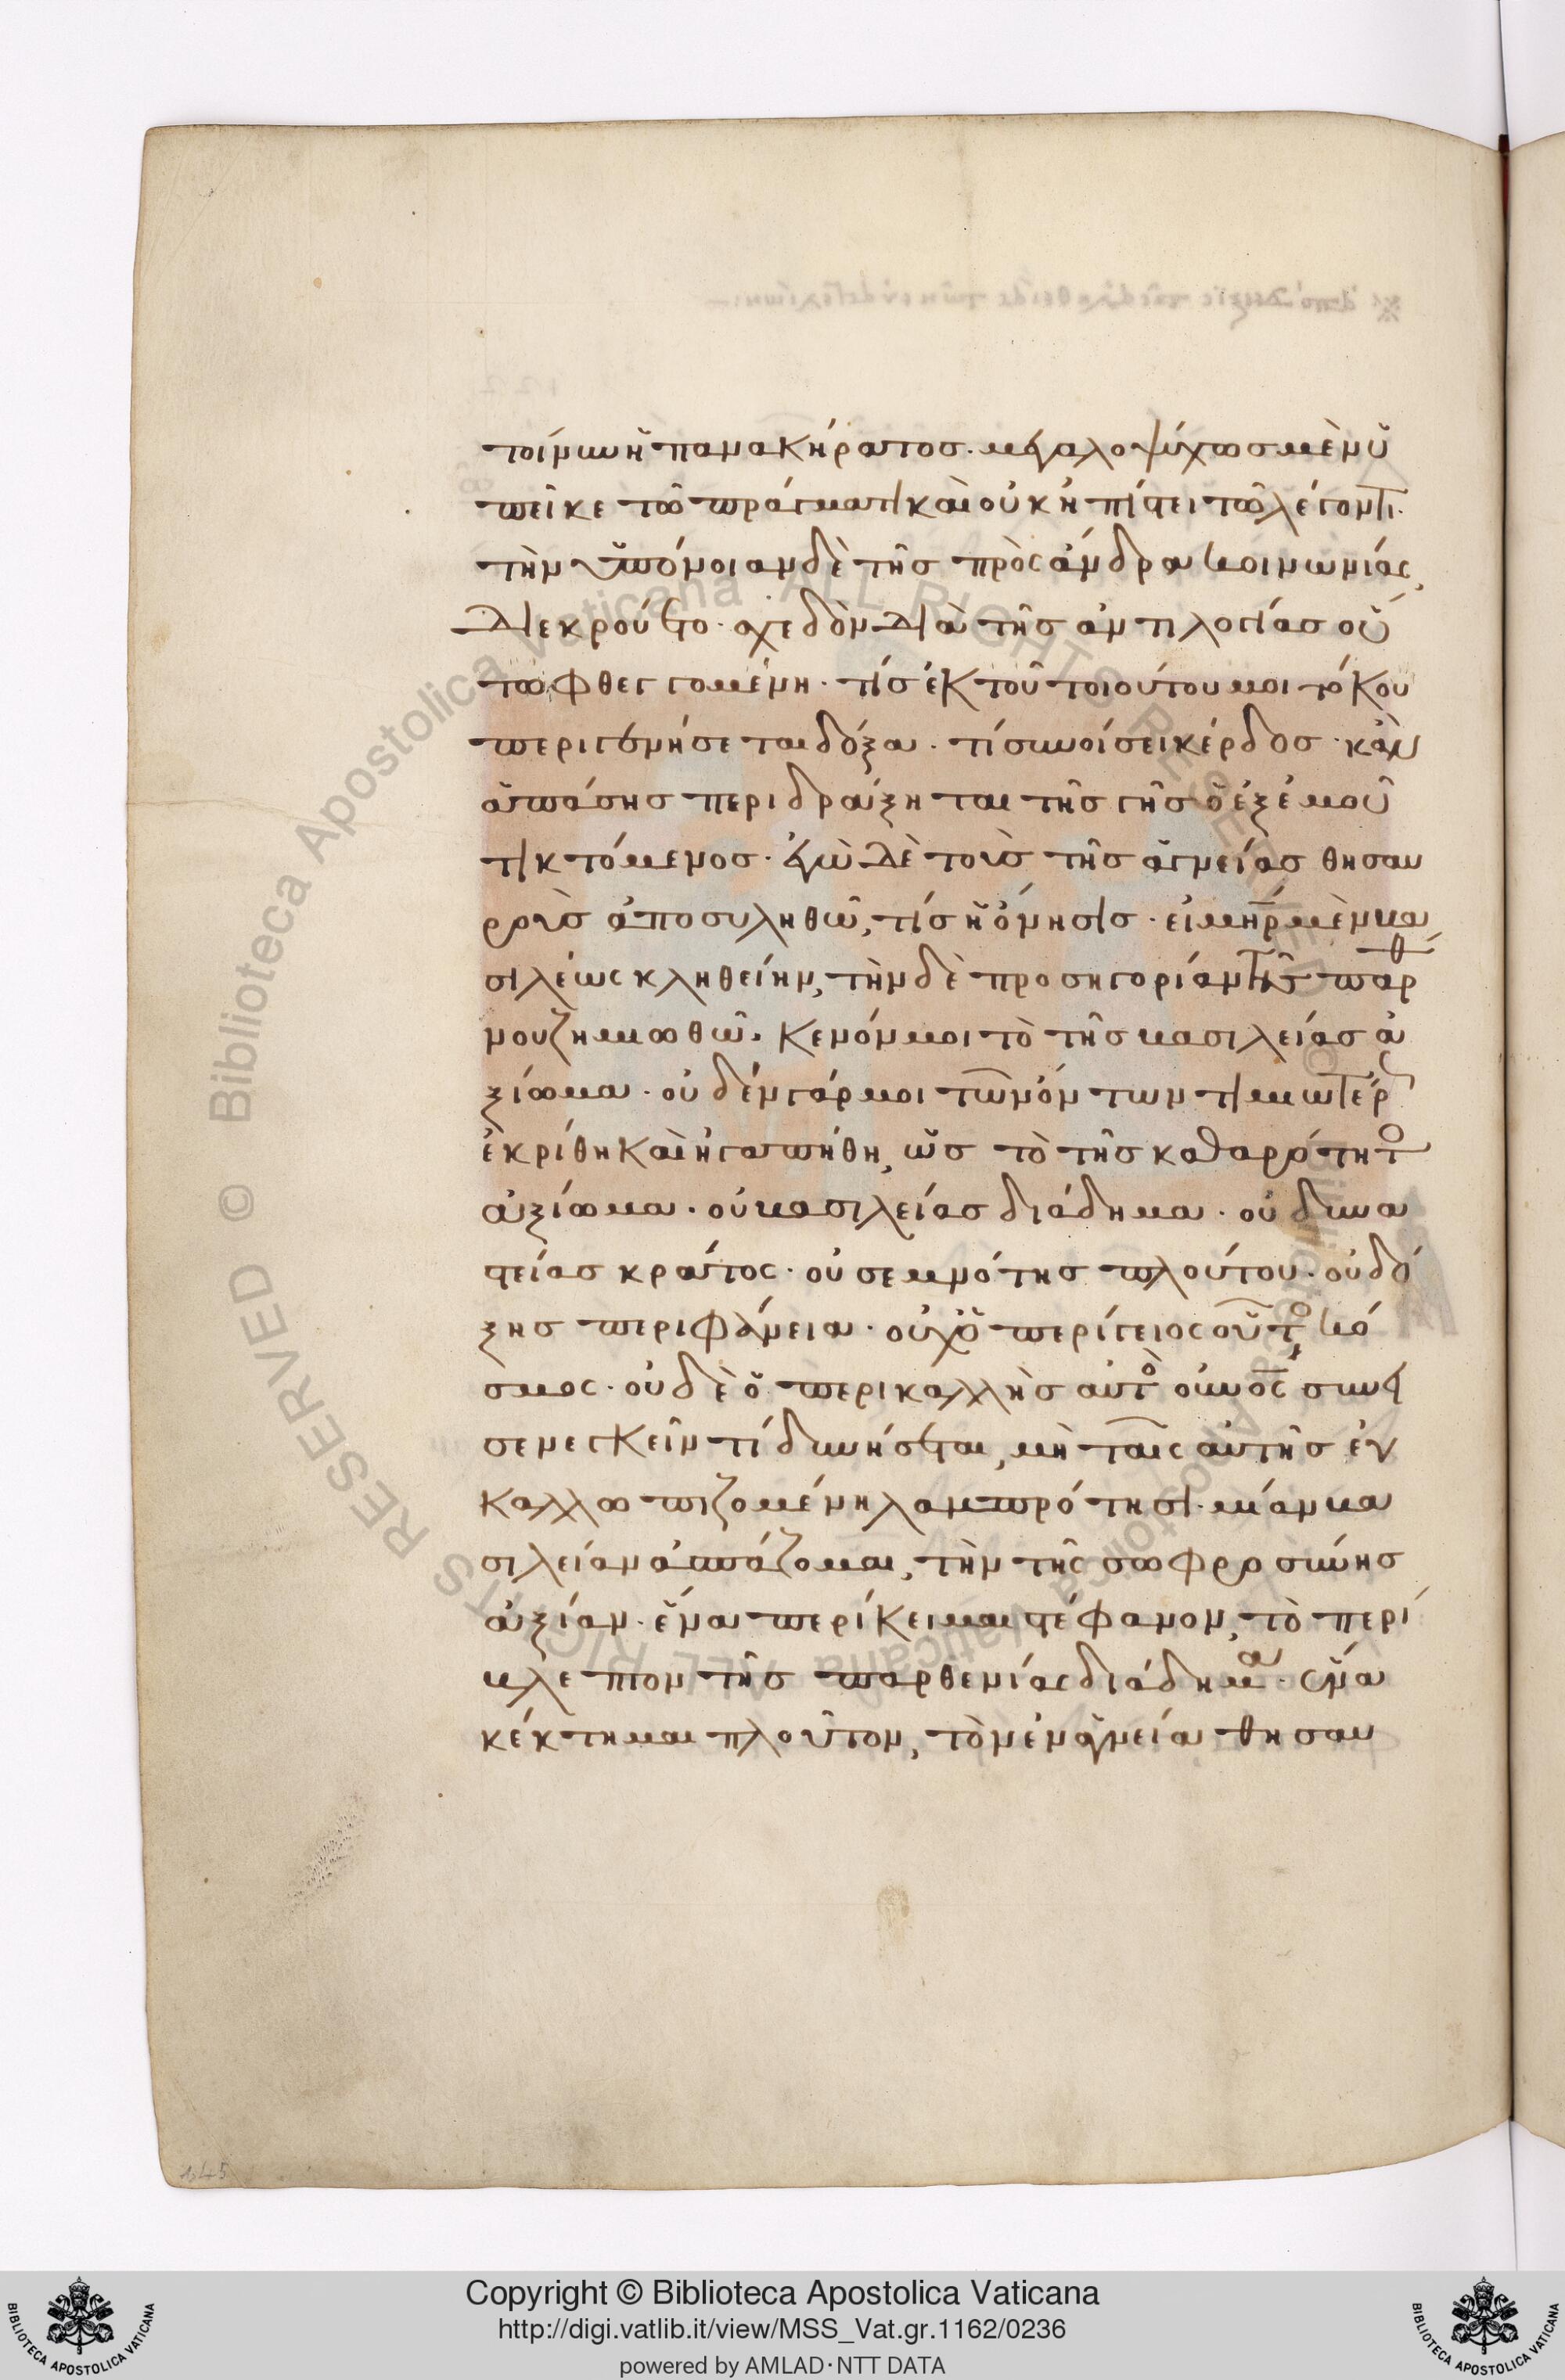 τοίνυν ἡ πανακήρατος· μεγαλοψύχως μὲν ὑ
πεῖκε τῶ πράγματι καὶ οὐκ ἠπίστει τῶ λέγοντι·
τὴν ὑπόνοιαν δὲ τῆς πρὸς ἄνδρα κοινωνίας,
διεκρούετο· σχεδὸν διὰ τῆς ἀντιλογίας οὕ
τω φθεγγομένη· τίς ἐκ τοῦ τοιούτου μοι τόκου
περιγενήσεται δόξα· τί συνοίσει κέρδος· κἂν
ἁπάσης περιδράξηται τῆς γῆς ὁ ἐξ ἐμοῦ
τικτόμενος· ἐγὼ δὲ τοὺς τῆς ἁγνείας θησαυ
ροὺς ἀποσυληθῶ, τίς ἡ ὄνησις· εἰ μήτηρ μὲν βα
σιλέως κληθείην, τὴν δὲ προσηγορίαν τῆς παρθέ
νου ζημιωθῶ· κενόν μοι τὸ τῆς βασιλείας ἀ
ξίωμα· οὐδέν γάρ μοι τῶν ὄντων τιμιώτερον
ἐκρίθη καὶ ἠγαπήθη, ὡς τὸ τῆς καθαρότητος
ἀξίωμα· οὐ βασιλείας διάδημα· οὐ δυνα
στείας κράτος· οὐ σεμνότης πλούτου· οὐ δό
ξης περιφάνεια· οὐχ ὁ περίγειος οὗτος κό
σμος· οὐδὲ ὁ περικαλλὴς αὐτὸς οὐρανός συνε
σενεγκεῖν τί δυνήσεται, μὴ ταῖς αὐτῆς ἐγ
καλλωπιζομένη λαμπρότησι· μίαν βα
σιλείαν ἀσπάζομαι, τὴν τῆς σωφροσύνης
ἀξίαν· ἕνα περίκειμαι στέφανον, τὸ περί
βλεπτον τῆς παρθενίας διάδημα· ἕνα
κέκτημαι πλοῦτον, τὸν ἐν ἁγνεία θησαυ
145
Copyright © Biblioteca Apostolica Vaticana
http://digi.vatlib.it/view/MSS_Vat.gr.1162/0236
powered by AMLAD·NTT DATA
BIBLIOTECA APOSTOLICA VATICANA
BIBLIOTECA APOSTOLICA VATICANA
© Biblioteca Apostolica Vaticana · ALL RIGHTS RESERVED